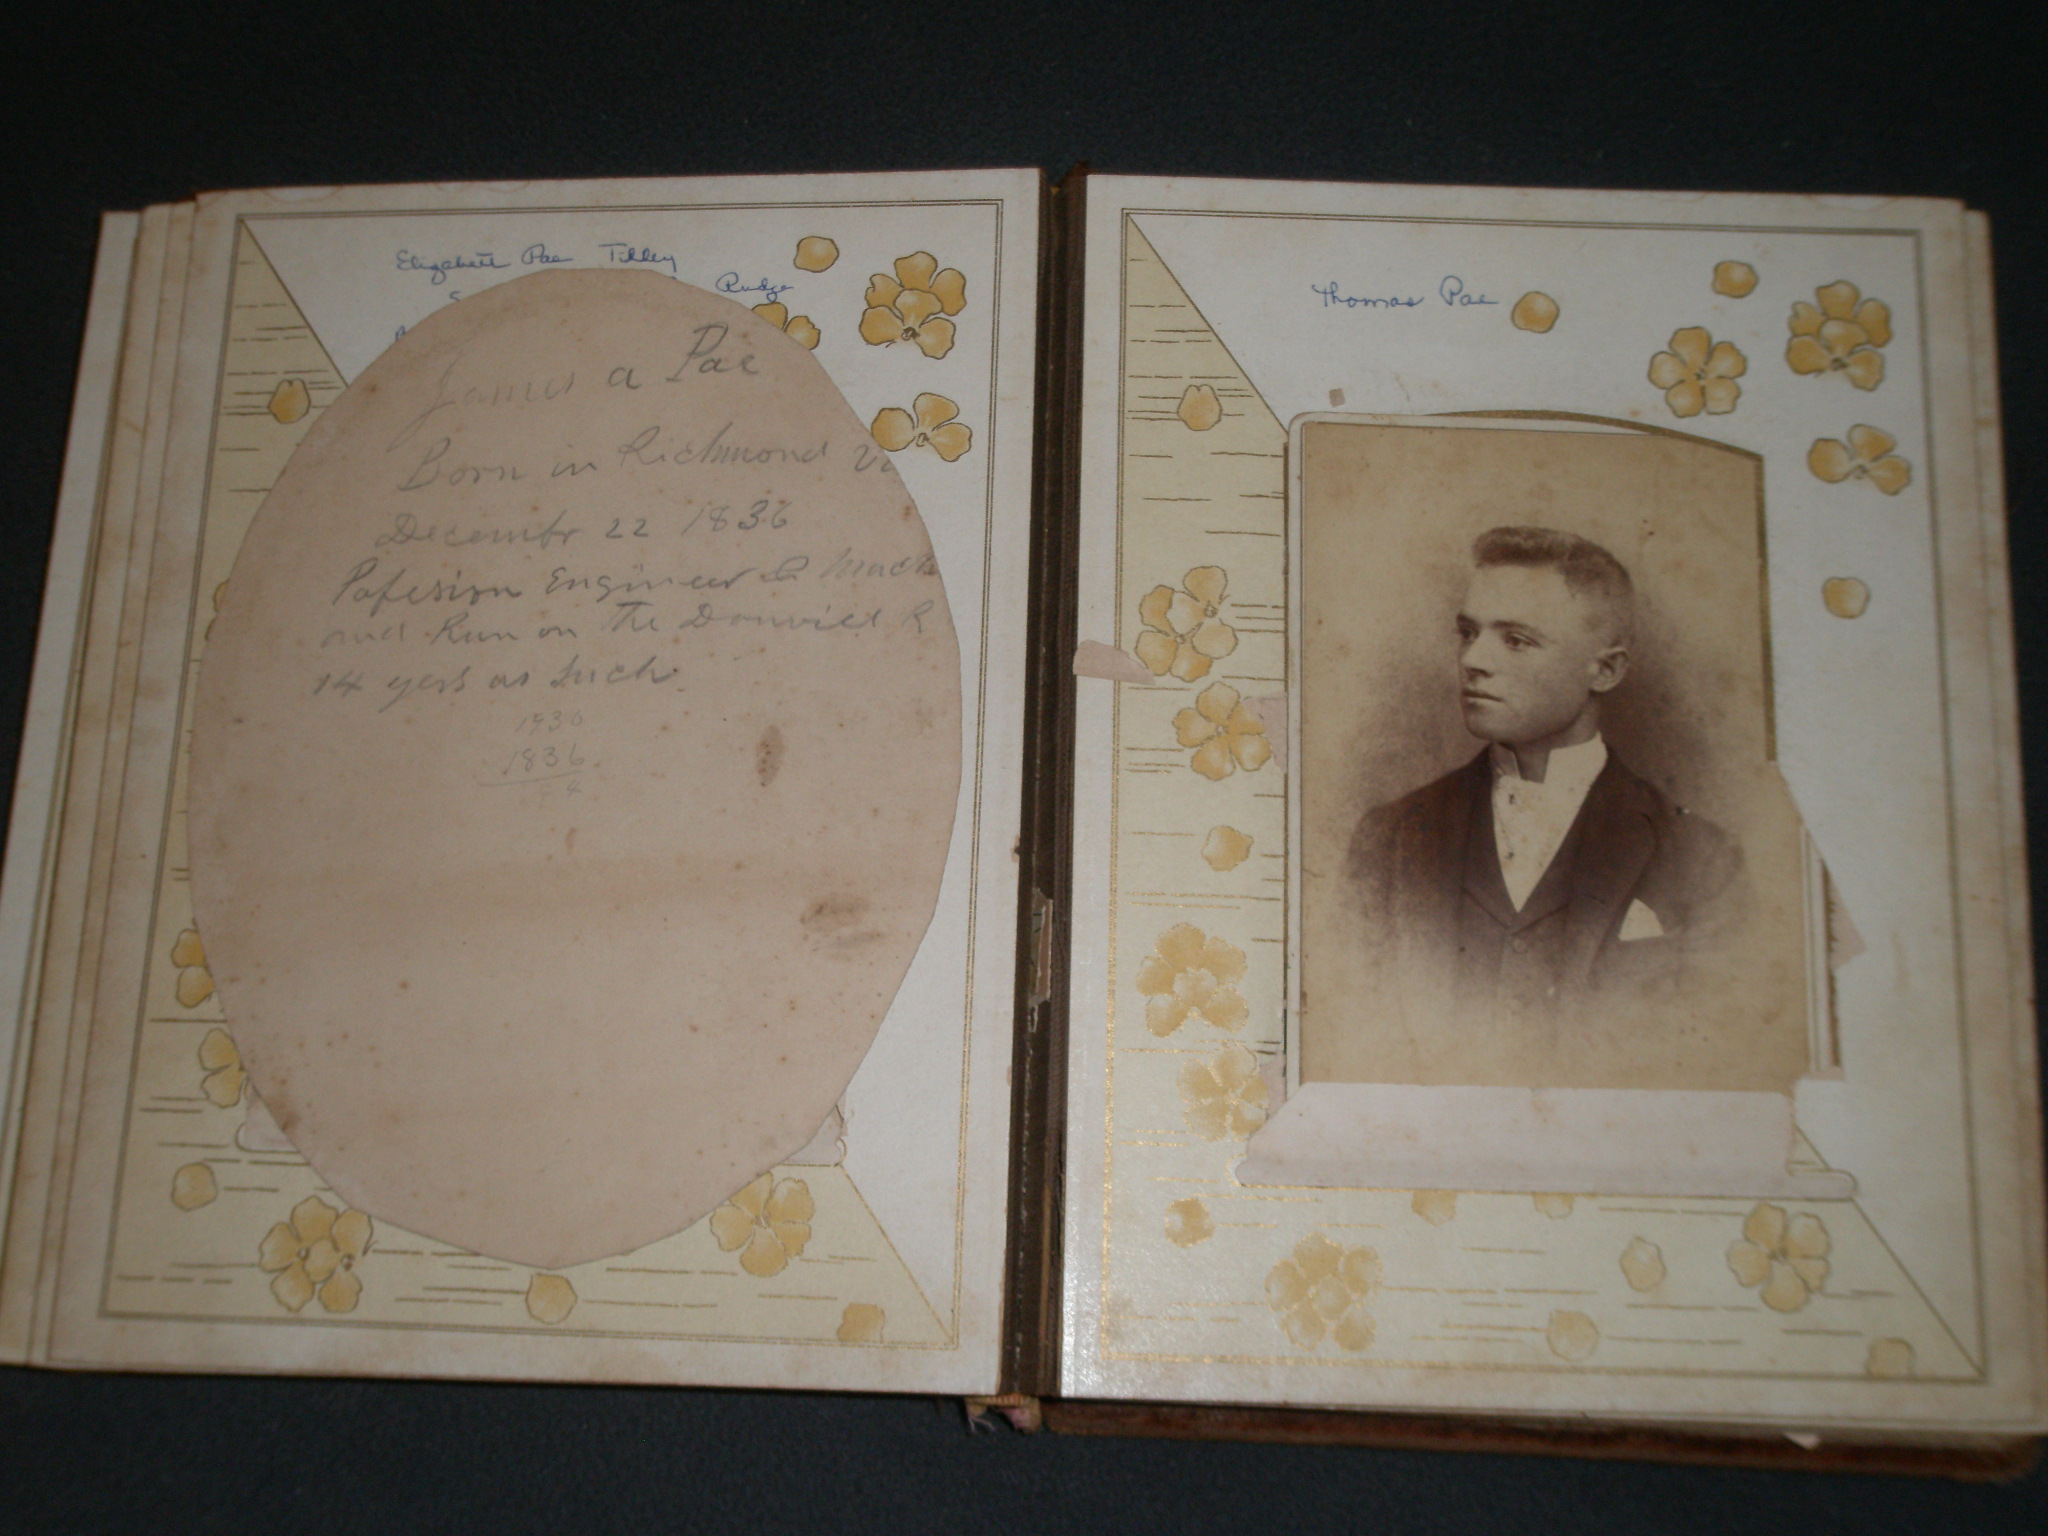 Elizabeth Pae Tilley
Rudge
James A Pae
Born in Richmond Va
Decembr 22 1836
Pofesion Engineer &
and Run on The Danvill R
14 yers as Such
1930
1836
94
Thomas Pae